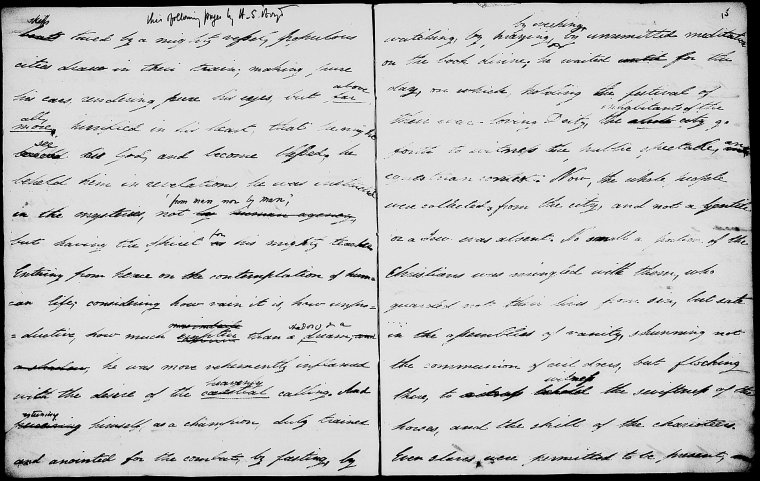 this following pages by H. S. Boyd
tired by a mighty populous
cities draw in their train; making pure
above
his ears, rendering pure his eyes, but far
all,
more, purified in his heart, that he might
see
his God, and become blessed, he
beheld him in revelations; he was instructed
'from men, nor by man,'
in the mysteries, not by human agency,
but having the Spirit for his mighty teacher.
Entering from hence on the contemplation of hum-
an life, considering how vain it is, how unpro-
=ductive, how much emptier than a dream, and
shadow or a
a shadow, he was more vehemently inflamed
heavenly
with the desire of the celestial calling. And
exercising
himself, as a champion, duly trained
and anointed for the combat, by fasting, by
13
by weeping,
watching, by praying, by unremitted meditation
on the book divine, he waited until for the
day, on which holding the festival of
inhabitants of the
their war-loving Deity, the whole city go
forth to witness the public spectacle, an
equestrian contest. Now, the whole people
were collected from the city, and not a Gentile
or a Jew was absent. No small a portion of the
Christians was mingled with them, who
guarded not their lives from sin, but sate
in the assemblies of vanity, shunning not
the communion of evil doers, but flocking
witness
there, to behold the swiftness of the
horses, and the skill of the charioteers.
Even slaves were permitted to be present,